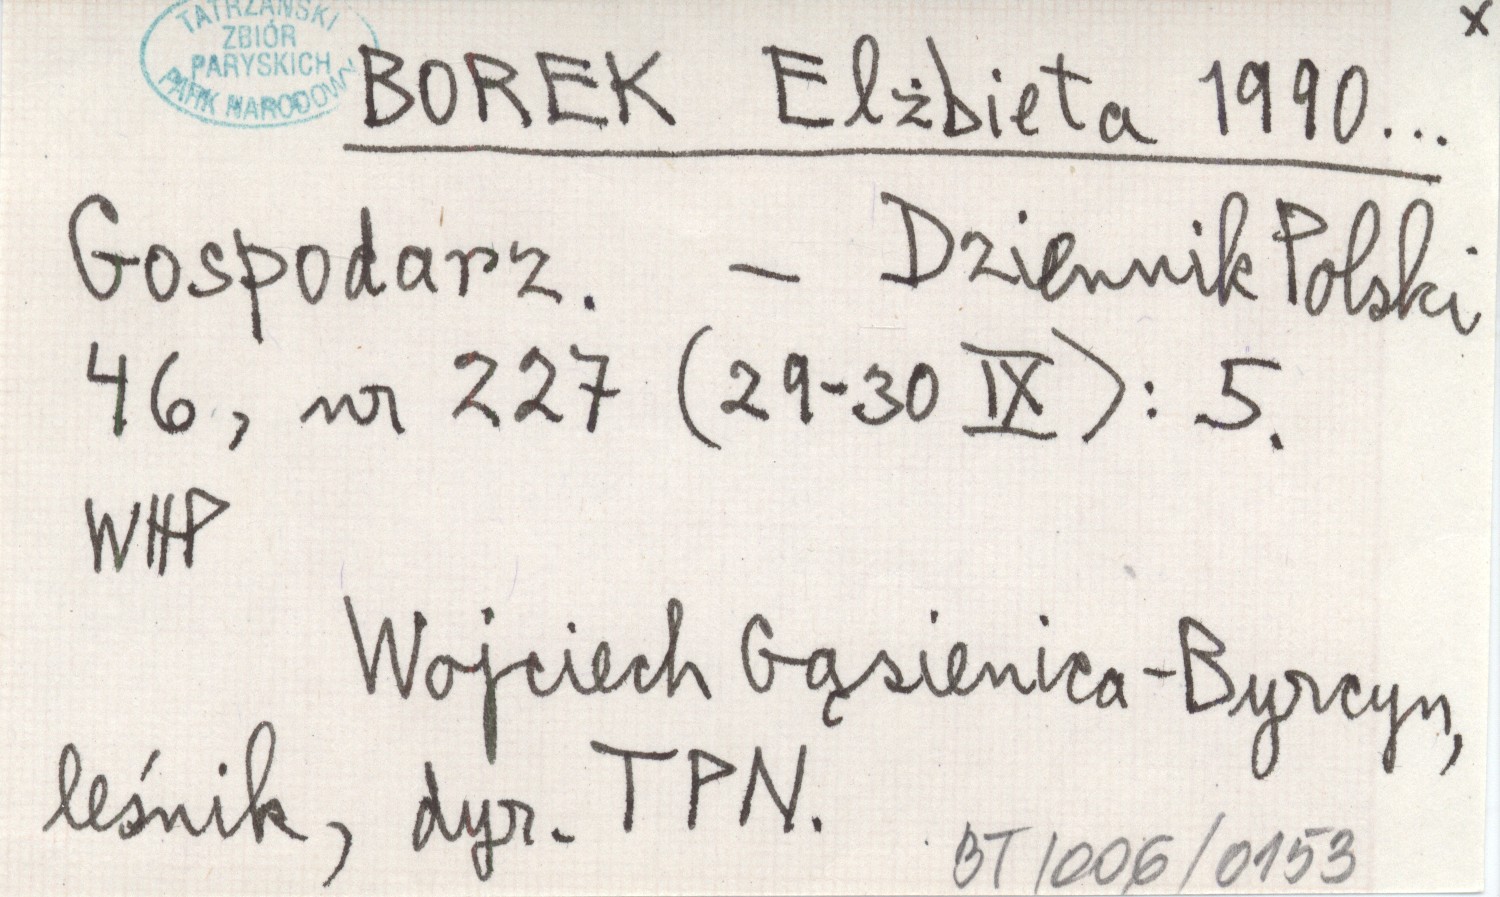 x
TATRZAŃSKI
ZBIÓR
PARYSKICH
PARK NARODOWY
BOREK Elżbieta 1990...
Gospodarz. – Dziennik Polski
46, nr 227 (29-30 IX): 5.
WHP
Wojciech Gąsienica-Byrcyn,
leśnik, dyr. TPN.
BT/006/0153